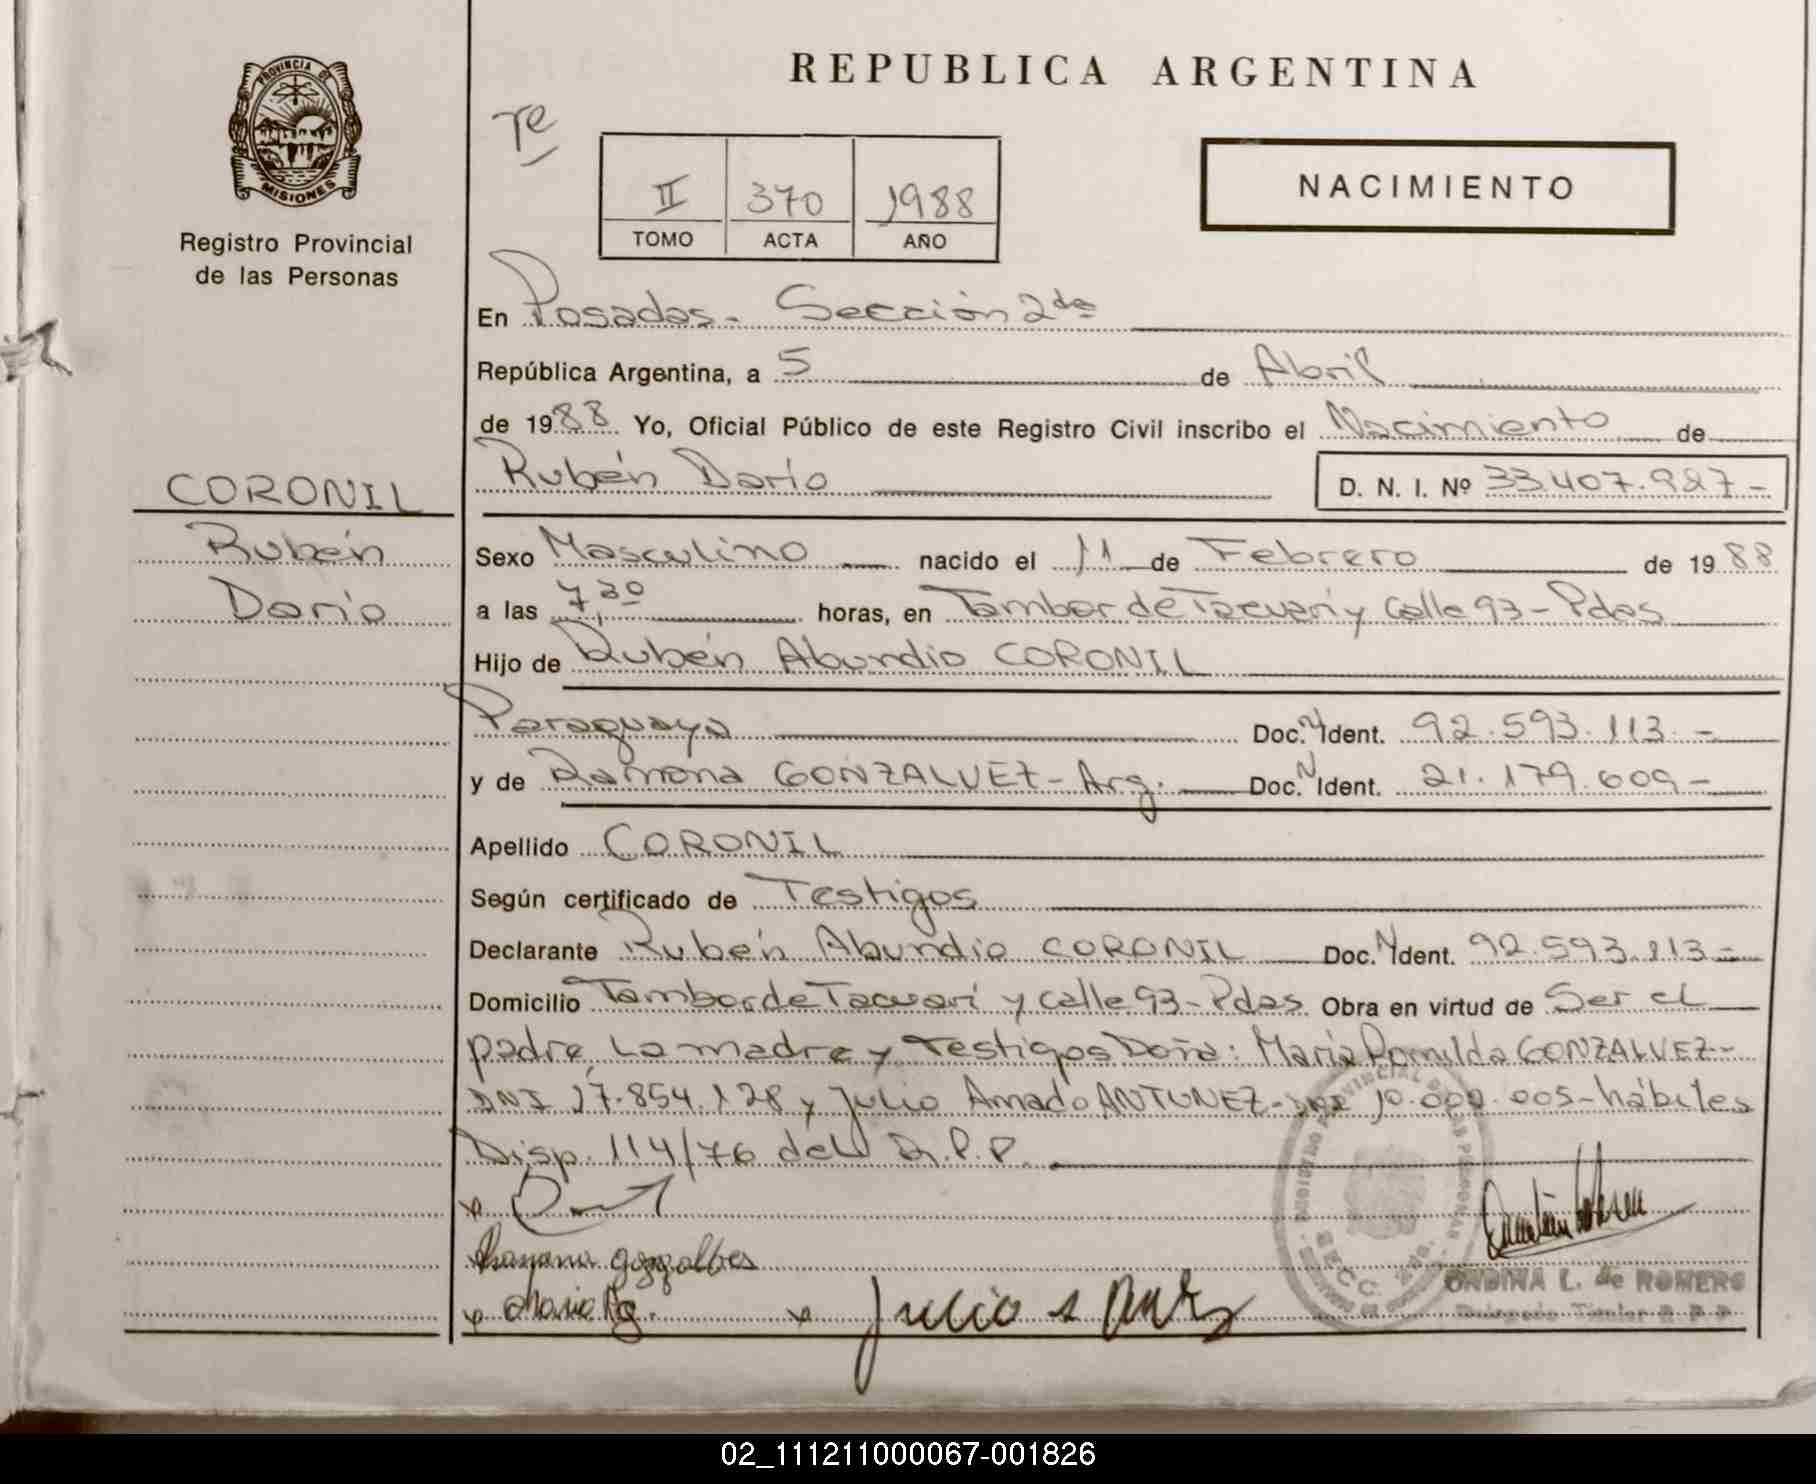 REPUBLICA ARGENTINA
PROVINCIA DE
MISIONES
Registro Provincial
de las Personas
II 370 1988
TOMO ACTA AÑO
NACIMIENTO
En Posadas - Sección 2da
República Argentina, a 5 de Abril
de 1988 Yo, Oficial Público de este Registro Civil inscribo el Nacimiento de
CORONIL
Rubén Darío
Rubén Darío D. N. I. Nº 33.407.987-
Sexo Masculino nacido el 11 de Febrero de 1988
a las 7,30 horas, en Tambor de Tacuarí y Calle 93 - Pdas
Hijo de Rubén Abundio CORONIL
Paraguaya Doc. N Ident. 92.593.113.-
y de Ramona GONZALVEZ - Arg. Doc. N Ident. 21.179.609-
Apellido CORONIL
Según certificado de Testigos
Declarante Rubén Abundio CORONIL Doc. N Ident. 92.593.113-
Domicilio Tambor de Tacuarí y calle 93 - Pdas Obra en virtud de Ser el
padre, La madre y Testigos Doña: María Romilda GONZALVEZ-
DNI 17.854.128 y Julio Amado ANTUNEZ- DNI 10.000.005 - hábiles
Disp. 114/76 del R.P.P.
Ramona gonzalbes
Maria Rg.
Julio A
SECC. 2da.
ONDINA L. de ROMERO
Delegado Titular R P P
02_111211000067-001826